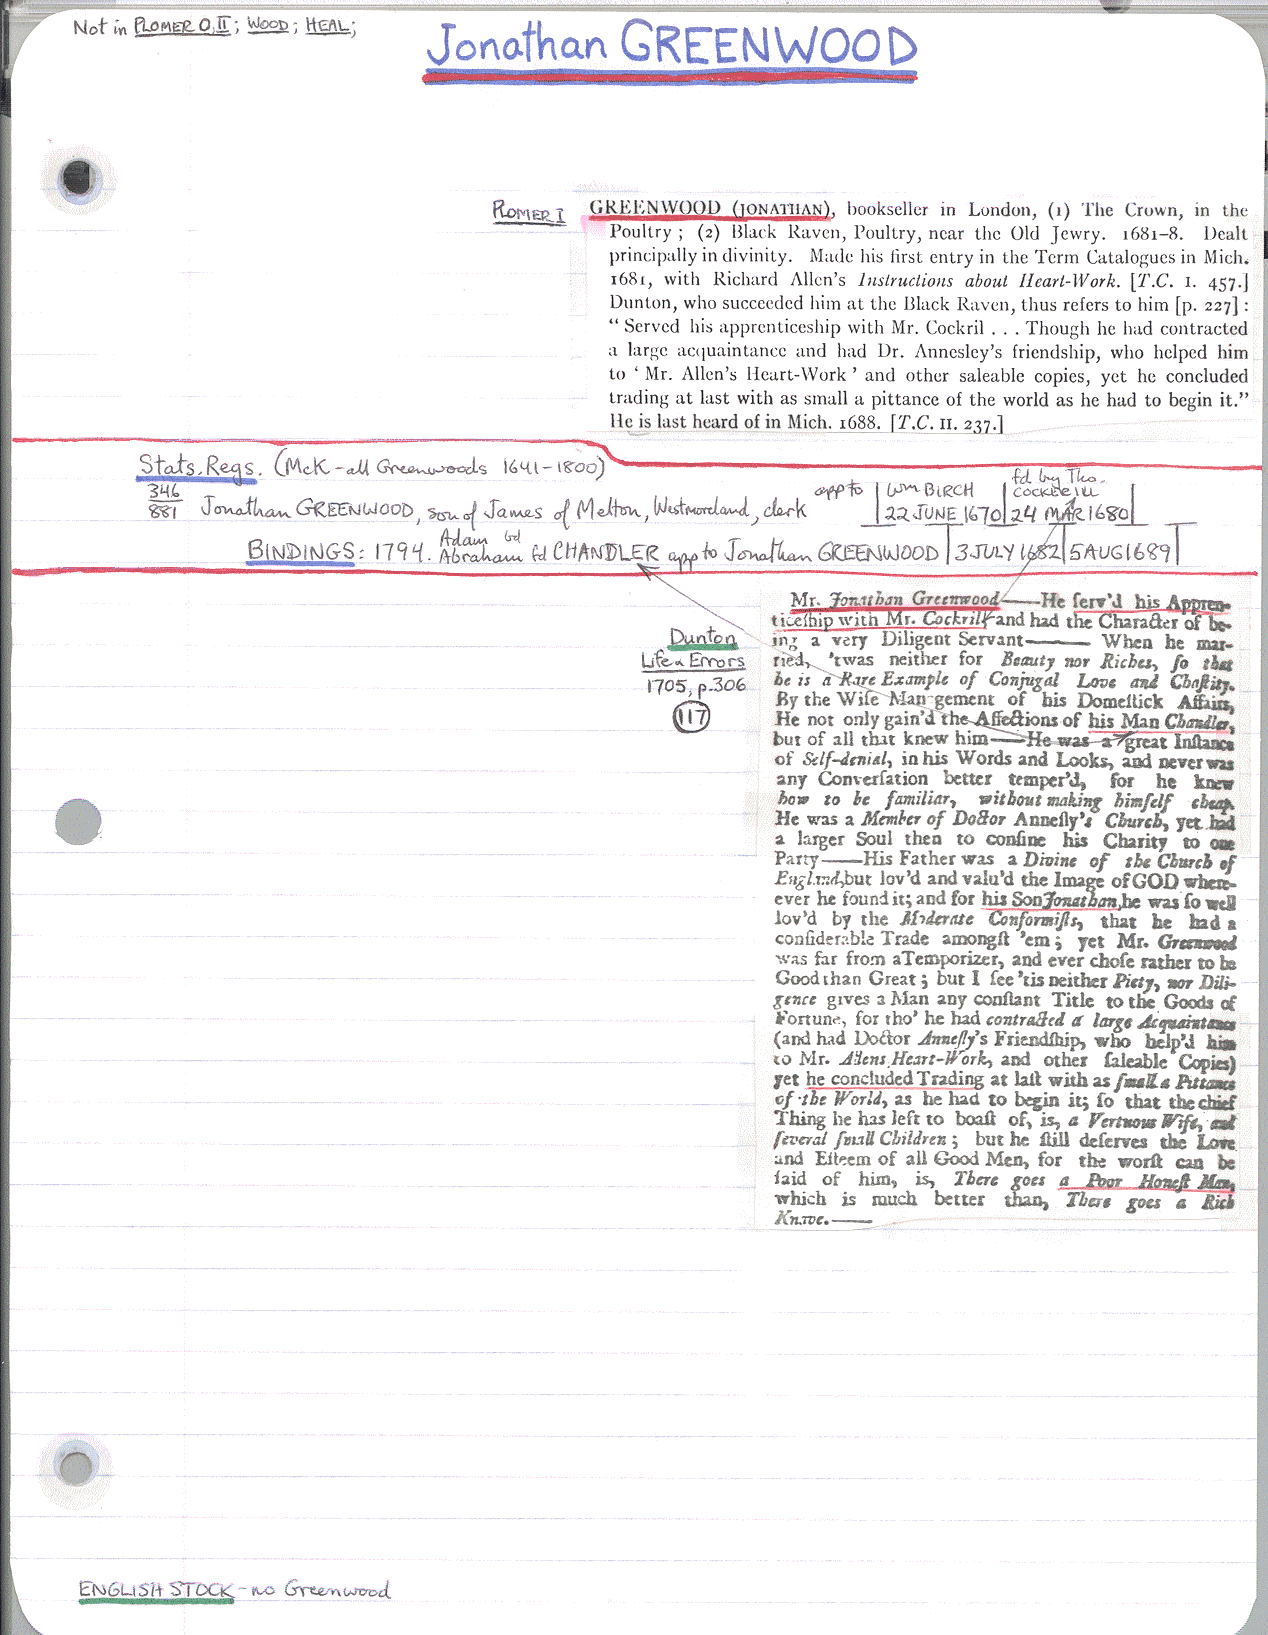 Not in PLOMER O, II; WOOD; HEAL;
Jonathan GREENWOOD
PLOMER I
GREENWOOD (JONATHAN), bookseller in London, (1) The Crown, in the
Poultry; (2) Black Raven, Poultry, near the Old Jewry. 1681–8. Dealt
principally in divinity. Made his first entry in the Term Catalogues in Mich.
1681, with Richard Allen's Instructions about Heart-Work. [T.C. I. 457.]
Dunton, who succeeded him at the Black Raven, thus refers to him [p. 227]:
“Served his apprenticeship with Mr. Cockril . . . Though he had contracted
a large acquaintance and had Dr. Annesley's friendship, who helped him
to ‘Mr. Allen's Heart-Work’ and other saleable copies, yet he concluded
trading at last with as small a pittance of the world as he had to begin it.”
He is last heard of in Mich. 1688. [T.C. II. 237.]
Stats. Regs. (McK - all Greenwoods 1641-1800)
346
881
Jonathan GREENWOOD, son of James of Melton, Westmoreland, clerk app to Wm BIRCH 22 JUNE 1670 fd by Tho. COCKERILL 24 MAR 1680
BINDINGS: 1794. Adam Abraham fd CHANDLER app to Jonathan GREENWOOD 3 JULY 1682 5 AUG 1689
Dunton
Life & Errors
1705, p.306
117
Mr. Jonathan Greenwood——He ſerv'd his Appren-
ticeſhip with Mr. Cockrill, and had the Character of be-
ing a very Diligent Servant—— When he mar-
ried, 'twas neither for Beauty nor Riches, ſo that
he is a Rare Example of Conjugal Love and Chaſtity.
By the Wiſe Management of his Domeſtick Affairs,
He not only gain'd the Affections of his Man Chandler,
but of all that knew him——He was a great Inſtance
of Self-denial, in his Words and Looks, and never was
any Converſation better temper'd, for he knew
how to be familiar, without making himſelf cheap.
He was a Member of Doctor Anneſly's Church, yet had
a larger Soul then to confine his Charity to one
Party——His Father was a Divine of the Church of
England, but lov'd and valu'd the Image of GOD where-
ever he found it; and for his Son Jonathan, he was ſo well
lov'd by the Moderate Conformiſts, that he had a
conſiderable Trade amongſt 'em; yet Mr. Greenwood
was far from a Temporizer, and ever choſe rather to be
Good than Great; but I ſee 'tis neither Piety, nor Dili-
gence gives a Man any conſtant Title to the Goods of
Fortune, for tho' he had contracted a large Acquaintance
(and had Doctor Anneſly's Friendſhip, who help'd him
to Mr. Allens Heart-Work, and other ſaleable Copies)
yet he concluded Trading at laſt with as ſmall a Pittance
of the World, as he had to begin it; ſo that the chief
Thing he has left to boaſt of, is, a Vertuous Wife, and
ſeveral ſmall Children; but he ſtill deſerves the Love
and Eſteem of all Good Men, for the worſt can be
ſaid of him, is, There goes a Poor Honeſt Man,
which is much better than, There goes a Rich
Knave.——
ENGLISH STOCK - no Greenwood